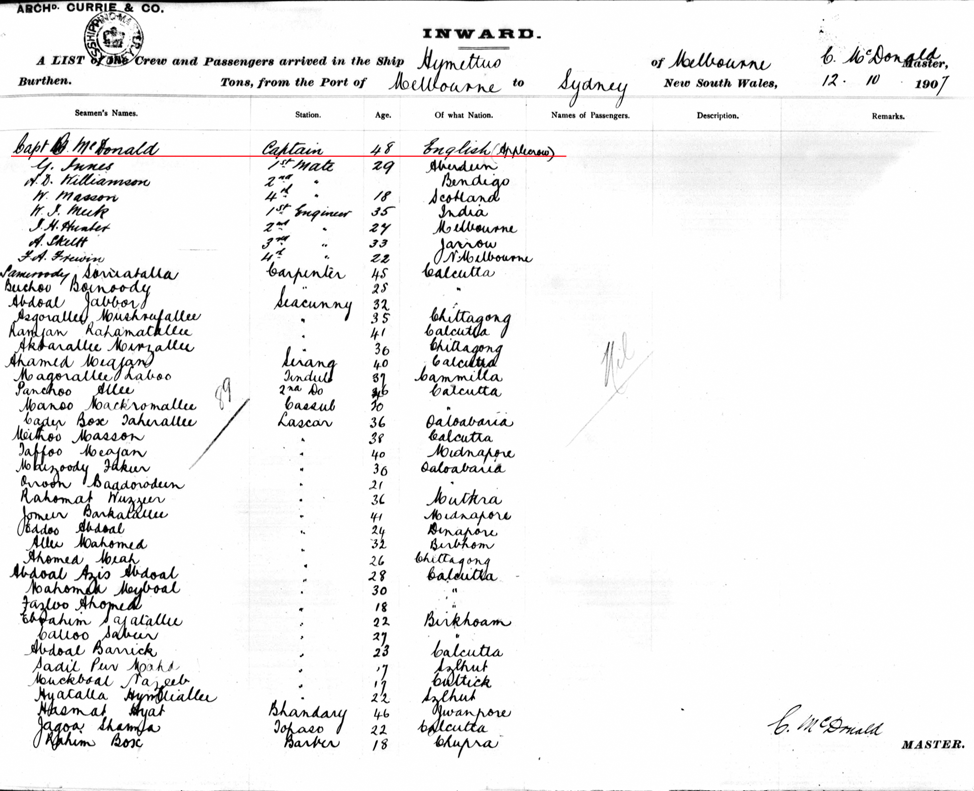 ARCHD. CURRIE & CO.
SHIPPING MASTER
INWARD.
A LIST of the Crew and Passengers arrived in the Ship Hymettus of Melbourne C. McDonald Master,
Burthen. Tons, from the Port of Melbourne to Sydney New South Wales, 12. 10 1907
Seamen's Names. Station. Age. Of what Nation. Names of Passengers. Description. Remarks.
Capt McDonald Captain 48 English (Applecrow)
G. Innes 1st Mate 29 Aberdeen
A. D. Williamson 2nd " Bendigo
W. Masson 4th " 18 Scotland
W. J. Meek 1st Engineer 35 India
J. H. Hunter 2nd " 27 Melbourne
A. Skett 3rd " 33 Jarrow
F. A. Frewin 4th " 22 N. Melbourne
Sorieatalla Carpenter 45 Calcutta
Buchoo Boinoody " 25 "
Abdoal Jabbor Seacunny 32 "
Asgorallee Mushrufallee " 35 Chittagong
Ramjan Rahamatallee " 41 Calcutta
Akbarallee Mirzallee " 36 Chittagong
Ahamed Meajan Serang 40 Calcutta
Magorallee Laboo Tindub 37 Cammilla
Panchoo Allee 2nd Do 36 Calcutta
Manoo Mackromallee Cassub 30 "
Cader Box Taherallee Lascar 36 Oaloabaria
Meithoo Masson " 38 Calcutta
Taffoo Meajan " 40 Midnapore
Moizoody Fakir " 36 Oaloabaria
Oroon Bagdorodun " 21 "
Rahomat Wuzzur " 36 Muthra
Jomeer Barkatallee " 41 Midnapore
Badoo Abdoal " 24 Dinapore
Allee Mahomed " 32 Birbhom
Ahomed Meah " 26 Chittagong
Abdoal Azis Abdoal " 28 Calcutta
Mahomed Meyboal " 30 "
Fazloo Ahomed " 18 "
Ebrahim Safatallee " 22 Birkhoam
Calloo Sabur " 27 "
Abdoal Barrick " 23 Calcutta
Sadil Pur Mohd " 17 Szlhut
Muckboal Nazeeb " 17 Cuttick
Hyatalla " 22 Szlhut
Hasmat Hyat Bhandary 46 Jwanpore
Jagoa Shamja Topaso 22 Calcutta
Rahim Box Barber 18 Chupra
89
Nil
C. McDonald
MASTER.